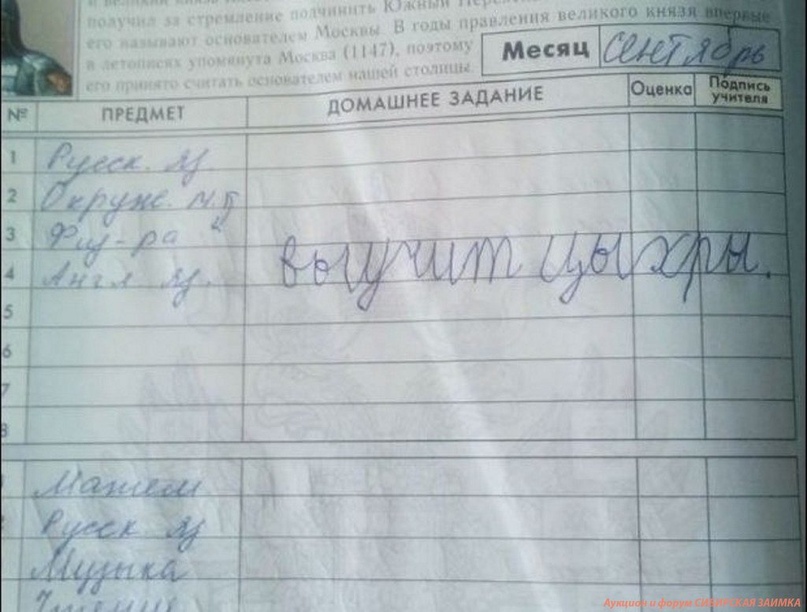 получил за стремление подчинить Южный
его называют основателем Москвы. В годы правления великого князя впервые
в летописях упомянута Москва (1147), поэтому
его принято считать основателем нашей столицы.
Месяц Сентябрь
№ ПРЕДМЕТ ДОМАШНЕЕ ЗАДАНИЕ Оценка Подпись учителя
1 Русск. яз.
2 Окруж. м.
3 Физ-ра
4 Англ яз. выучит цыхры.
5
6
7
8
Матем
Русск яз
Музыка
Аукцион и форум СИБИРСКАЯ ЗАИМКА